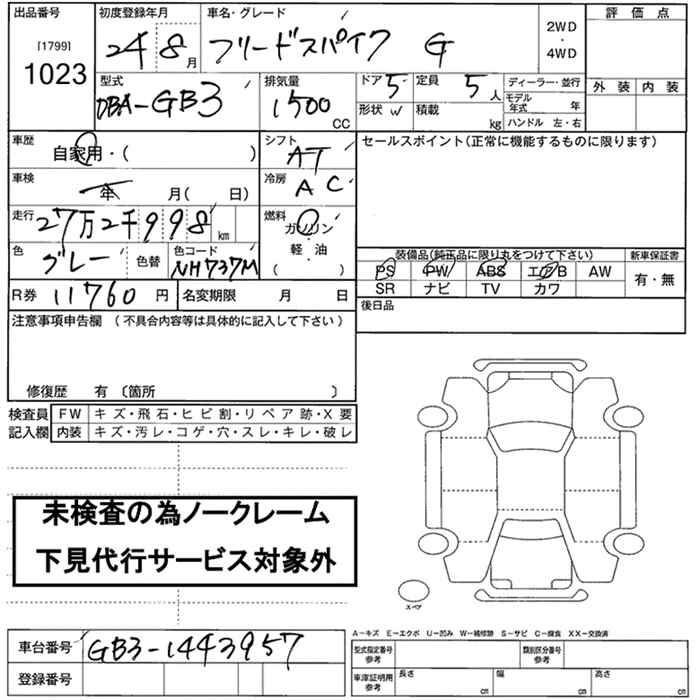 出品番号
[1799]
1023
初度登録年月
24 8月
車名・グレード
フリードスパイク G
2WD
・
4WD
評価点
外装 内装
型式
DBA-GB3
排気量
1500
CC
ドア 5
形状 W
定員 5人
積載 kg
ディーラー・並行
モデル年式 年
ハンドル 左・右
車歴
自家用・( )
シフト
AT
車検
年 月( 日)
冷房
AC
走行
27万2千998km
燃料
ガソリン
軽・油
( )
色
グレー
色替
色コード
NH737M
R券 11760円
名変期限 月 日
セールスポイント(正常に機能するものに限ります)
装備品(純正品に限り丸をつけて下さい)
PS PW ABS エアB AW
SR ナビ TV カワ
新車保証書
有・無
後日品
注意事項申告欄 (不具合内容等は具体的に記入して下さい)
修復歴 有〔箇所 〕
検査員記入欄
FW キズ・飛石・ヒビ割・リペア跡・X要
内装 キズ・汚レ・コゲ・穴・スレ・キレ・破レ
未検査の為ノークレーム
下見代行サービス対象外
スペア
A-キズ E-エクボ U-凹み W-補修跡 S-サビ C-腐食 XX-交換済
車台番号 GB3-1443957
登録番号
型式指定番号参考
類別区分番号参考
車庫証明用参考
長さ cm 幅 cm 高さ cm